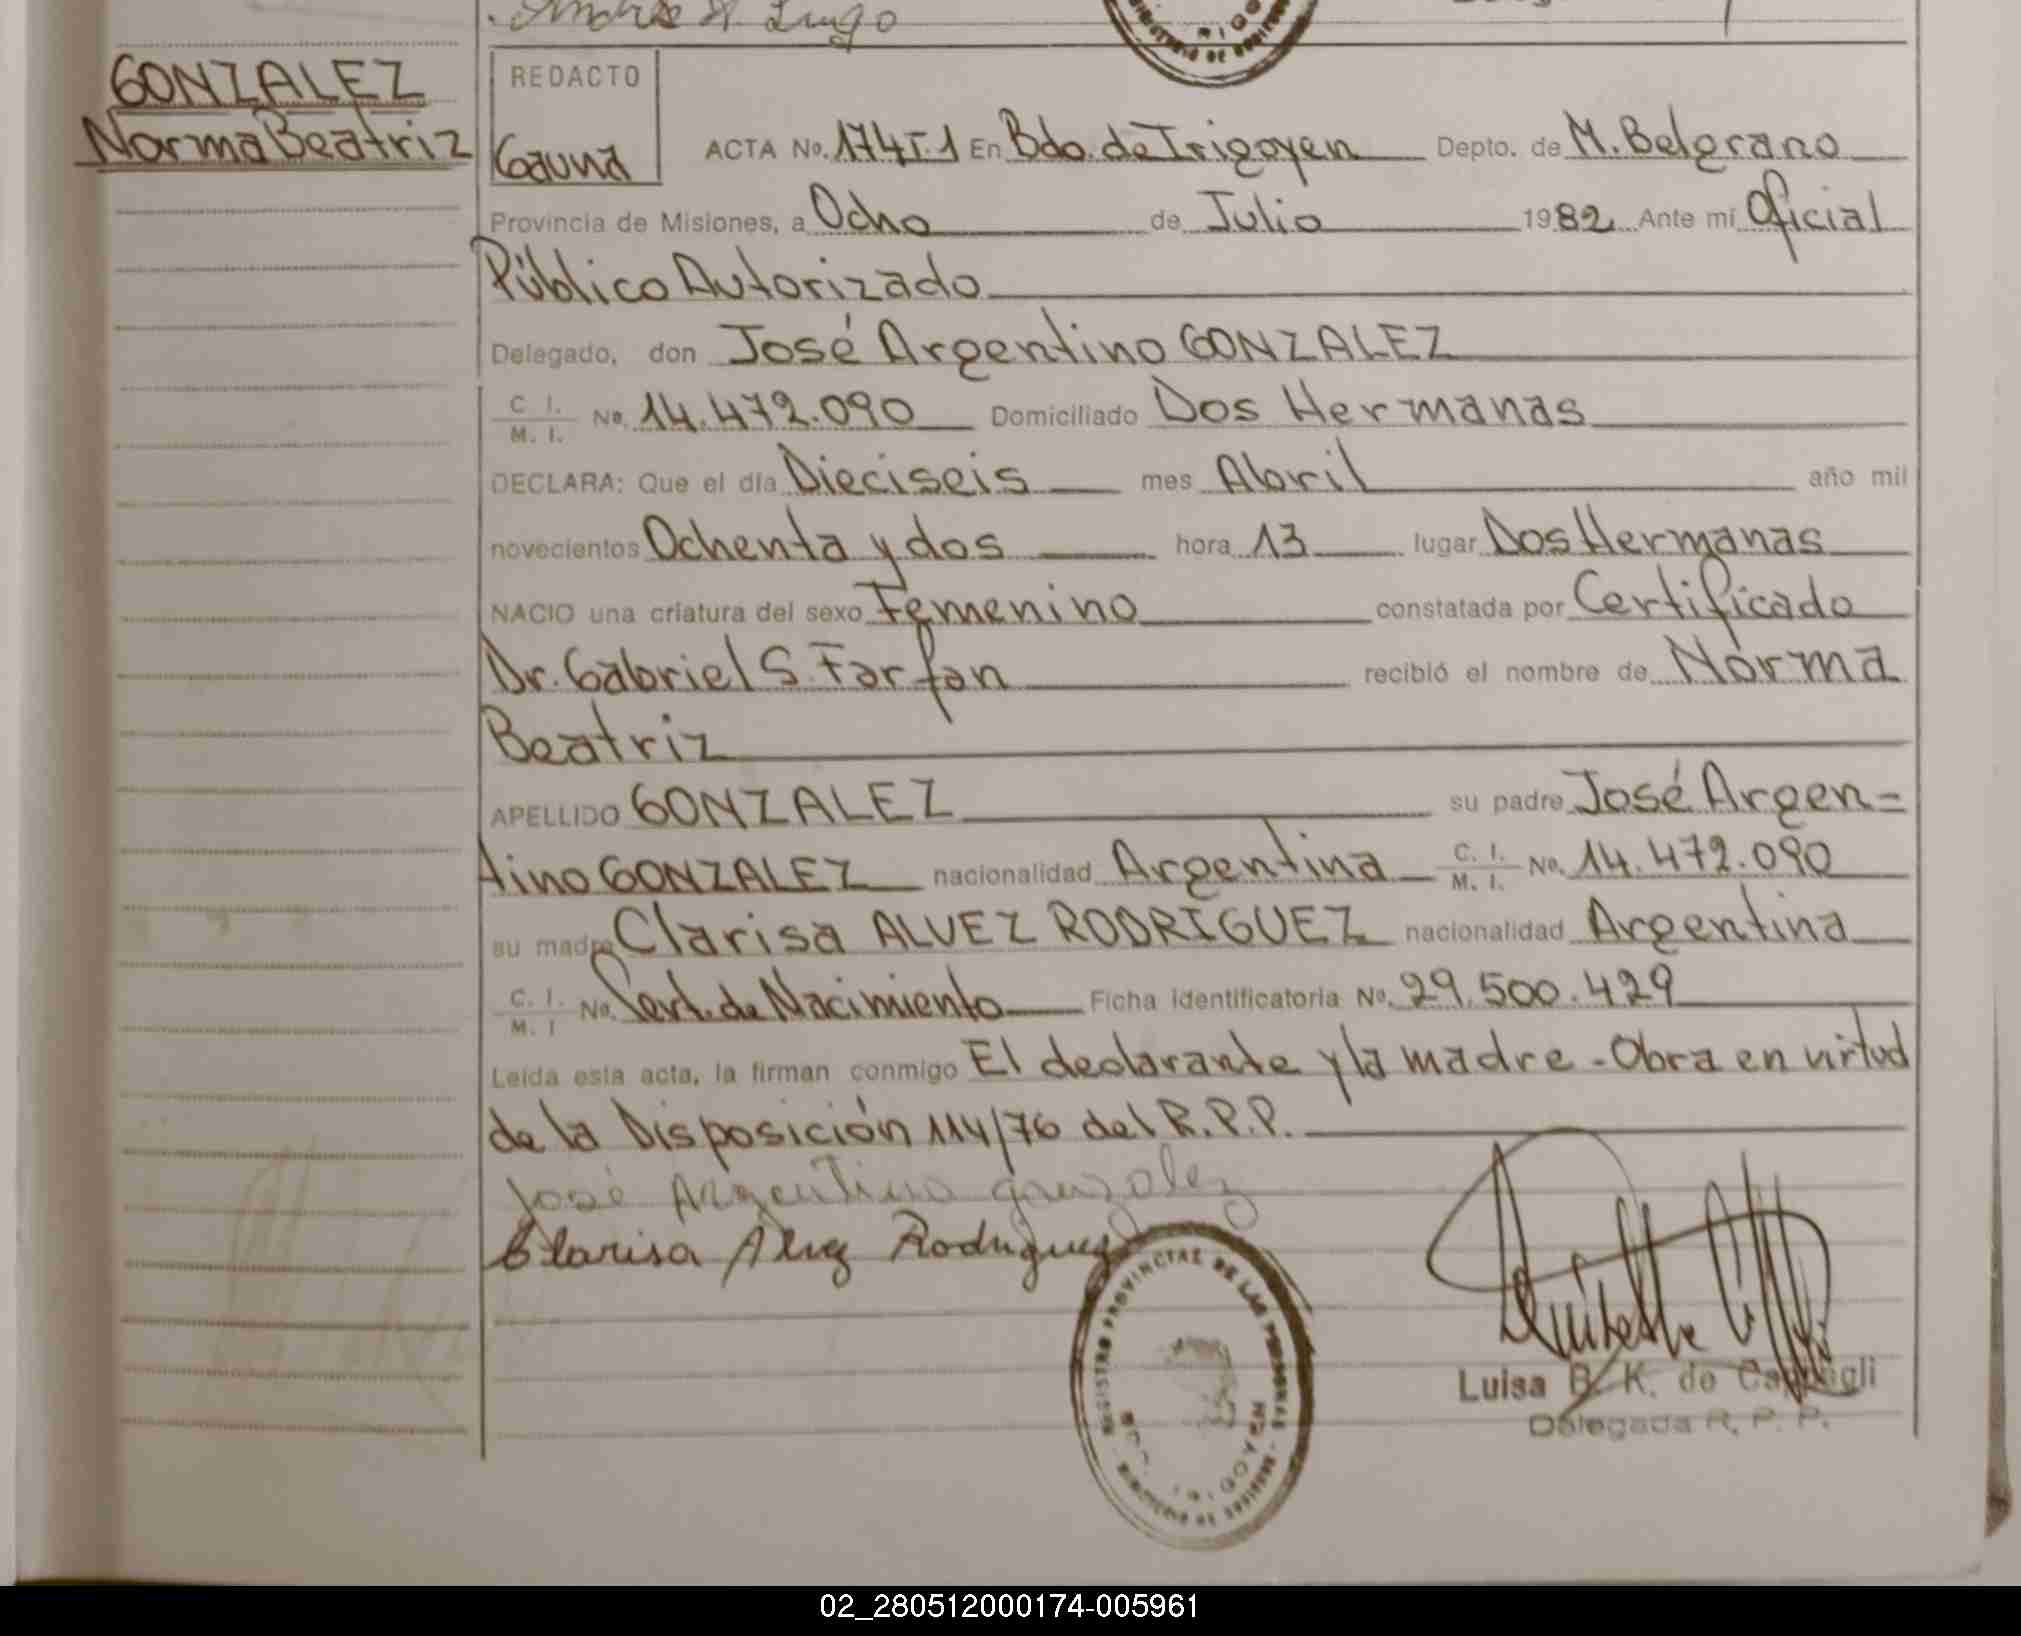 Andrés A. Lugo
GONZALEZ
Norma Beatriz
REDACTO
Gauna
ACTA No. 174T.1 En Bdo. de Irigoyen Depto. de M. Belgrano
Provincia de Misiones, a Ocho de Julio 1982 Ante mí Oficial
Público Autorizado
Delegado, don José Argentino GONZALEZ
C. I. M. I. No. 14.472.090 Domiciliado Dos Hermanas
DECLARA: Que el día Dieciseis mes Abril año mil
novecientos Ochenta y dos hora 13 lugar Dos Hermanas
NACIO una criatura del sexo Femenino constatada por Certificado
Dr. Gabriel S. Farfan recibió el nombre de Norma
Beatriz
APELLIDO GONZALEZ su padre José Argen=
tino GONZALEZ nacionalidad Argentina C. I. M. I. No. 14.472.090
su madre Clarisa ALVEZ RODRIGUEZ nacionalidad Argentina
C. I. M. I No. Cert. de Nacimiento Ficha identificatoria No. 29.500.429
Leída esta acta, la firman conmigo El declarante y la madre - Obra en virtud
de la Disposición 114/76 del R.P.P.
José Argentino gonzalez
Clarisa Alvez Rodriguez
REGISTRO PROVINCIAL DE LAS PERSONAS - MISIONES
Luisa B. K. de
Delegada R. P. P.
02_280512000174-005961